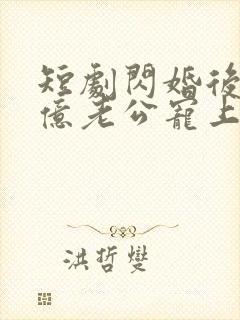 短劇閃婚後
億老公寵上
洪哲燮